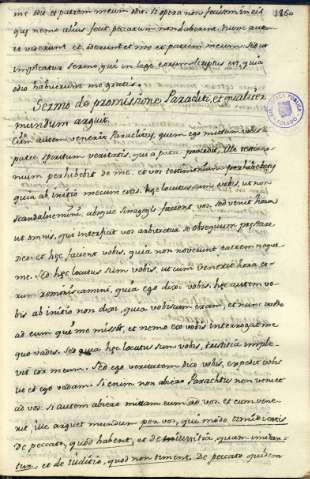 me odit et patrem meum odit. Si opera non fecissem in eis
quę nemo alius fecit peccatum non haberent. Nunc autem
et viderunt et oderunt et me et patrem meum. Sed ut
impleatur sermo qui in lege eorum scriptus est, quia
odio habuerunt me gratis.
Sermo de promissione Paracliti, et qualiter
mundum arguet.
Cum autem venerit Paraclitus, quem ego mittam vobis a
patre spiritum veritatis, qui a patre procedit, ille testimo-
nium perhibebit de me. et vos testimonium perhibebitis
quia ab initio mecum estis. hęc locutus sum vobis, ut non
scandalizemini. absque sinagogis facient vos. sed venit hora
ut omnis, qui interficit vos arbitretur obsequium pręstare
deo. et hęc facient vobis, quia non noverunt patrem neque
me. Sed hęc locutus sum vobis, ut cum venerit hora eo-
rum reminiscamini, quia ego dixi vobis. hęc autem vo-
bis ab initio non dixi, quia vobiscum eram, et nunc vado
ad eum qui me misit, et nemo ex vobis interrogat me
quo vadis. sed quia hęc locutus sum vobis, tristitia imple-
vit cor meum. Sed ego veritatem dico vobis, expedit vobis
ut et ego vadam. Si enim non abiero Paraclitus non veniet
ad vos. si autem abiero mittam eum ad vos. et cum vene-
rit ille arguet mundum per vos, qui modo
de peccato, quod habent, et de iustitia, quam
et de iudicio, quod non timent. de peccato quidem